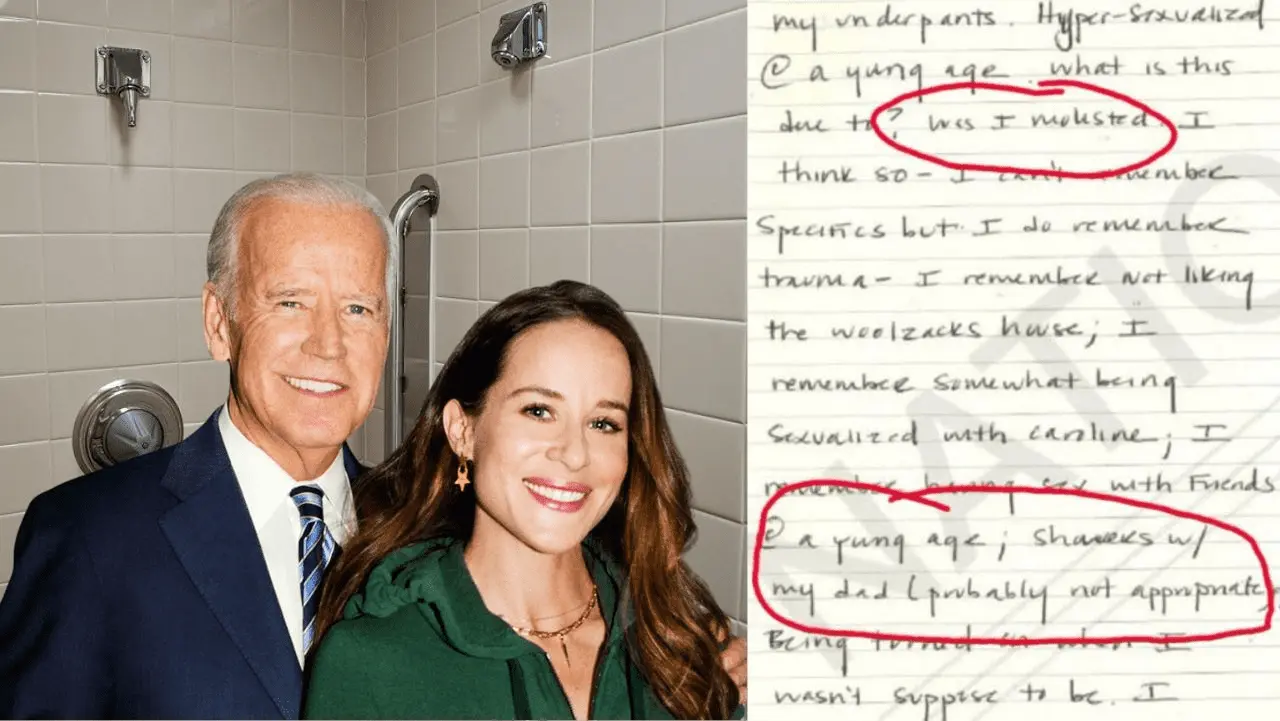 my underpants. Hyper-sexualized
@ a yung age. what is this
due to? Was I molested. I
think so - I can't remember
specifics but I do remember
trauma - I remember not liking
the woolzacks house; I
remember somewhat being
sexualized with caroline; I
remember having sex with Friends
@ a yung age; showers w/
my dad (probably not appropriate)
Being turned on when I
wasn't suppose to be. I
NATIO